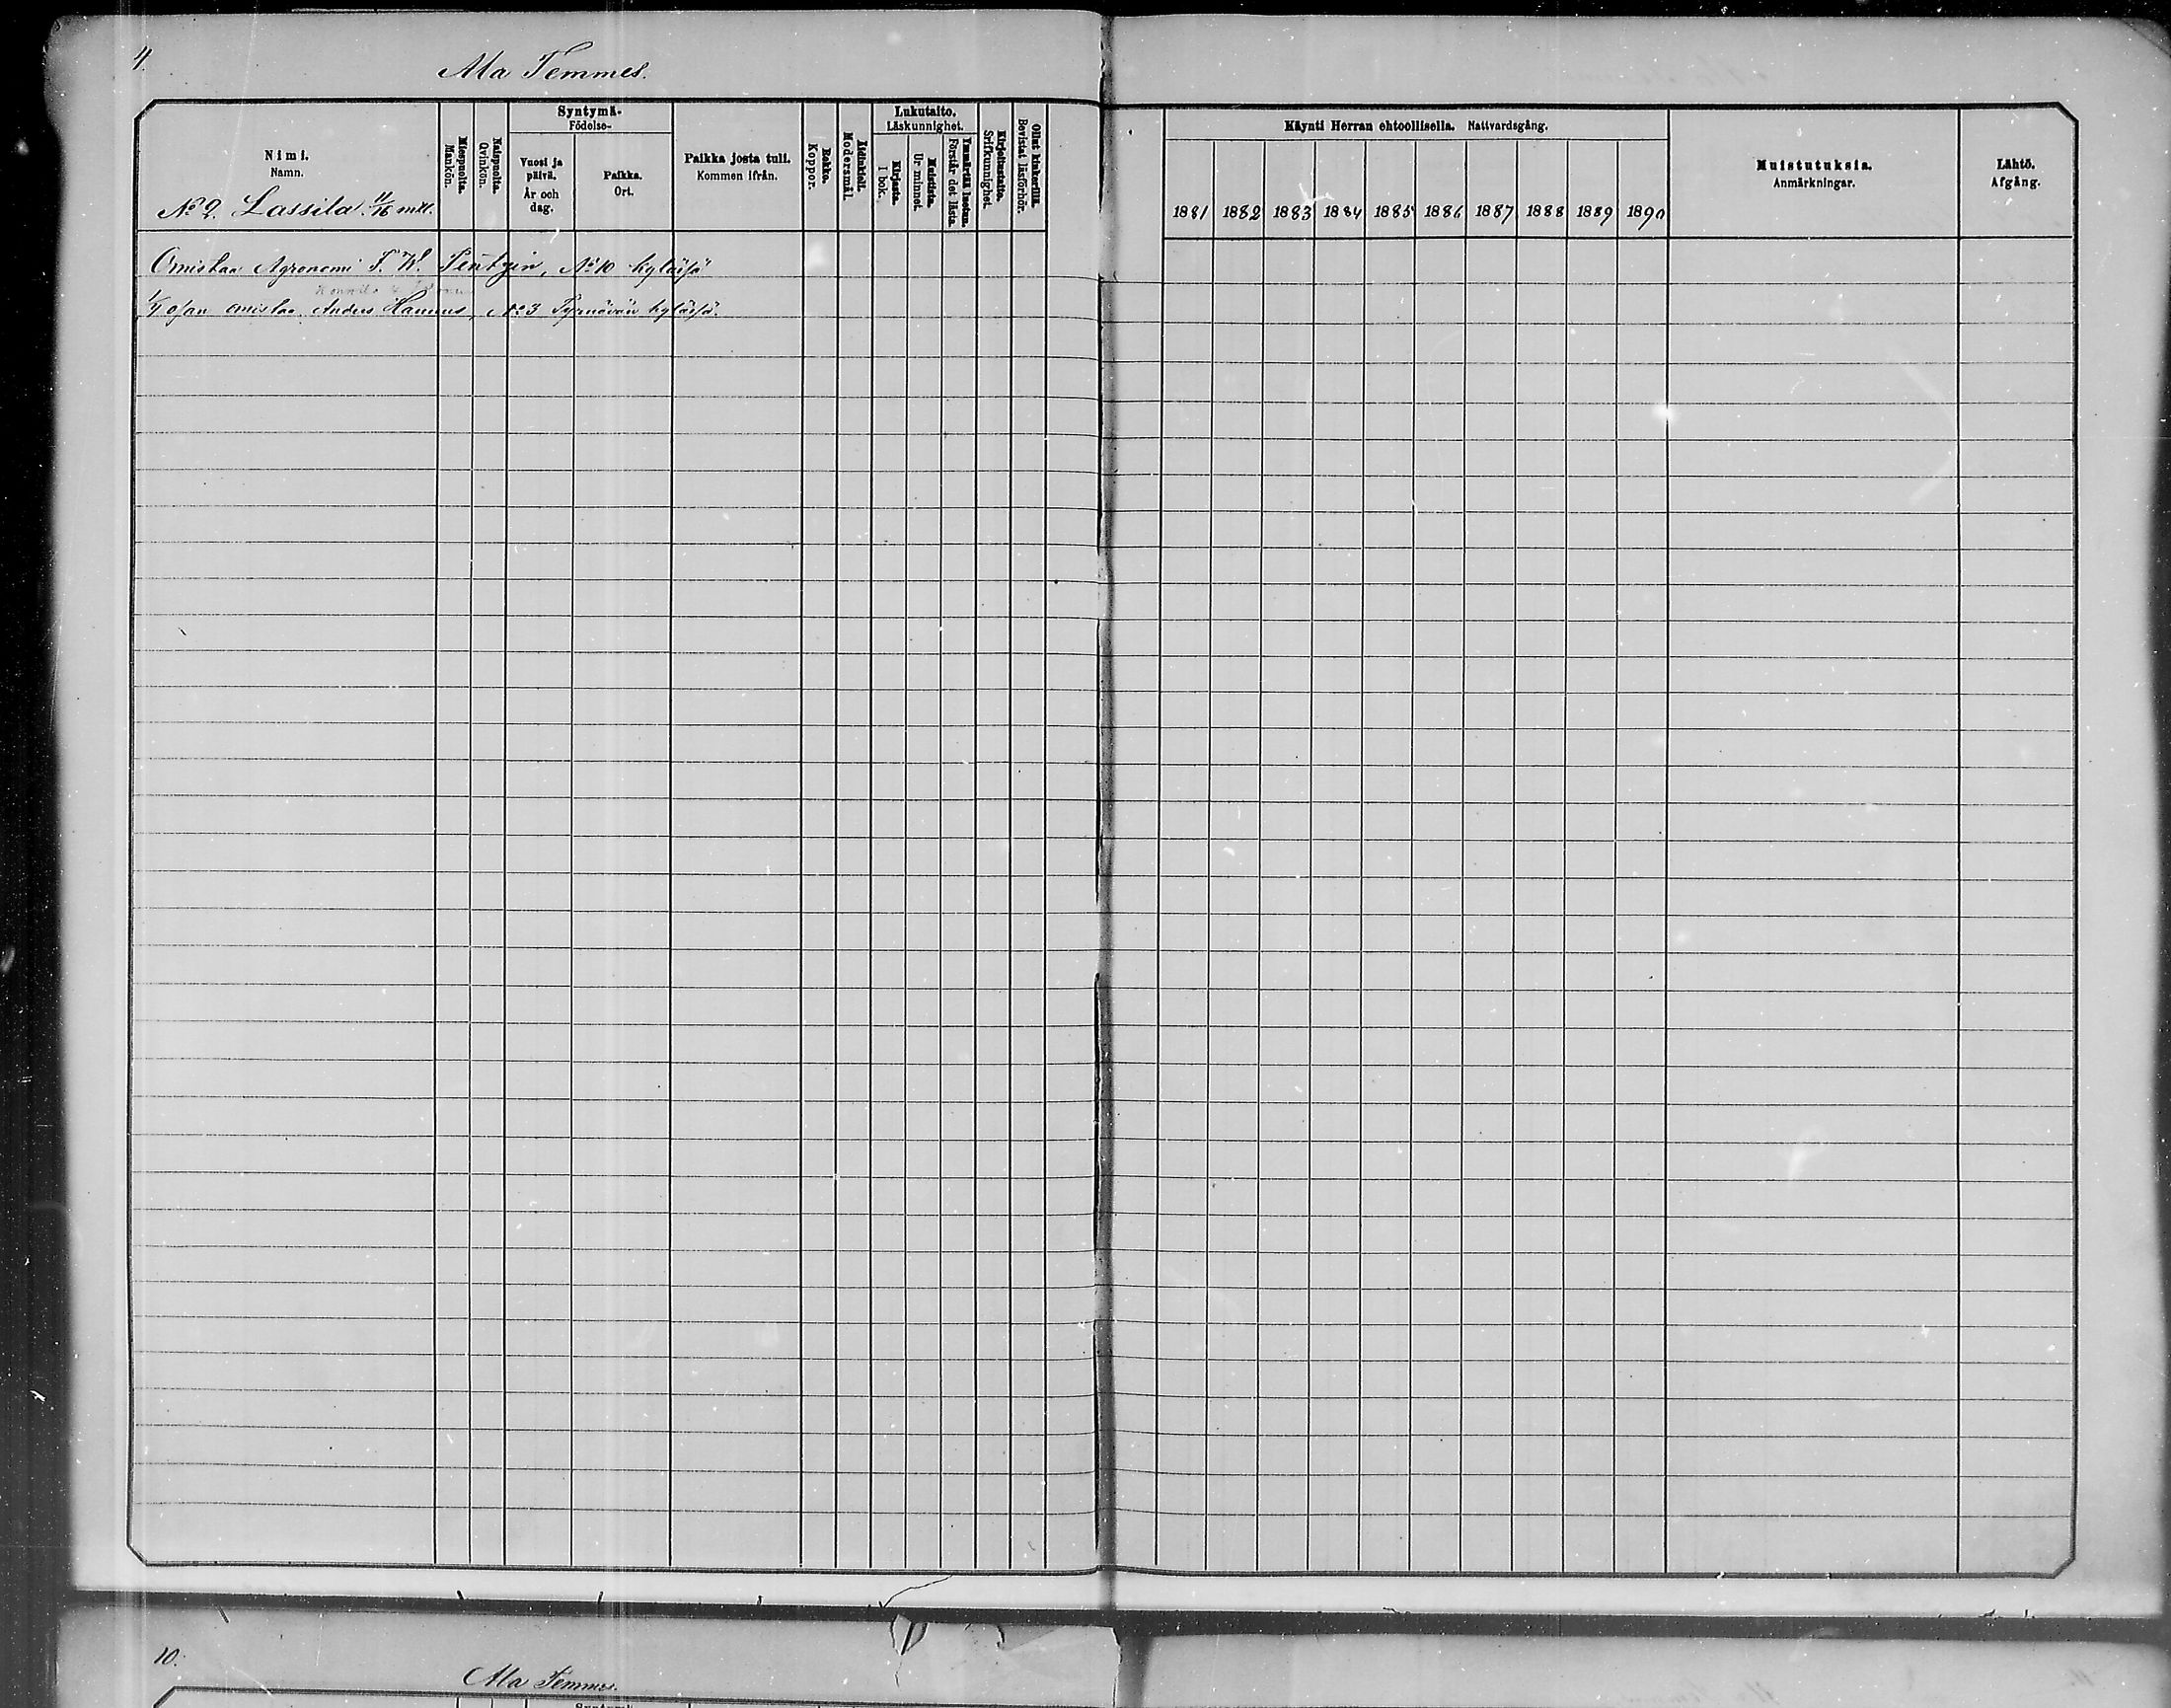 4.
Ala Temmes.
Nimi.
Namn.
No 2. Lassila 11/16 mtl.
Miespuolta.
Mankön.
Naispuolta.
Qvinkön.
Syntymä-
Födelse-
Vuosi ja päivä.
År och dag.
Paikka.
Ort.
Paikka josta tuli.
Kommen ifrån.
Rokko.
Koppor.
Äidinkieli.
Modersmål.
Lukutaito.
Läskunnighet.
Kirjasta.
I bok.
Muistista.
Ur minnet.
Ymmärtää luetun.
Förstår det lästa.
Kirjoitustaito.
Srifkunnighet.
Ollut kinkerillä.
Bevistat läsförhör.
Käynti Herran ehtoollisella. Nattvardsgång.
1881 1882 1883 1884 1885 1886 1887 1888 1889 1890
Muistutuksia.
Anmärkningar.
Lähtö.
Afgång.
Omistaa Agronomi F. W. Pentzin, No 10 kylässä
1/4 osan omistaa Anders Hannus, No 3 Tyrnävän kylässä.
10.
Ala Temmes.